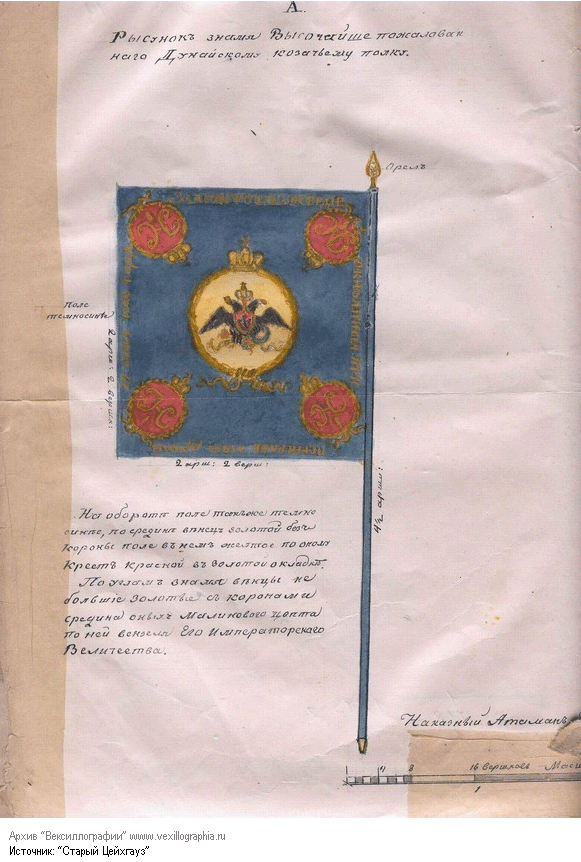 А.
Рысунокъ знамя Высочайше пожалован
наго Дунайскому козачьему полку.
Орелъ
поле
темносинѣе
2 арш: 2 верш:
2 арш: 2 верш:
4½ арши:
На оборотѣ поле такъже темно
синѣе, по срединѣ вѣнецъ золотой безъ
короны поле въ немъ желтое по оному
Крестъ красной въ золотой окладкѣ.
По угламъ знамя вѣнцы не
большіе золотые съ коронами
средина оныхъ Малинового цвѣта
по ней вензеля Его Императорскаго
Величества.
Наказный Атаманъ
4 8 16 вершковъ
1
Архив "Вексиллографии" www.vexillographia.ru
Источник: "Старый Цейхгауз"